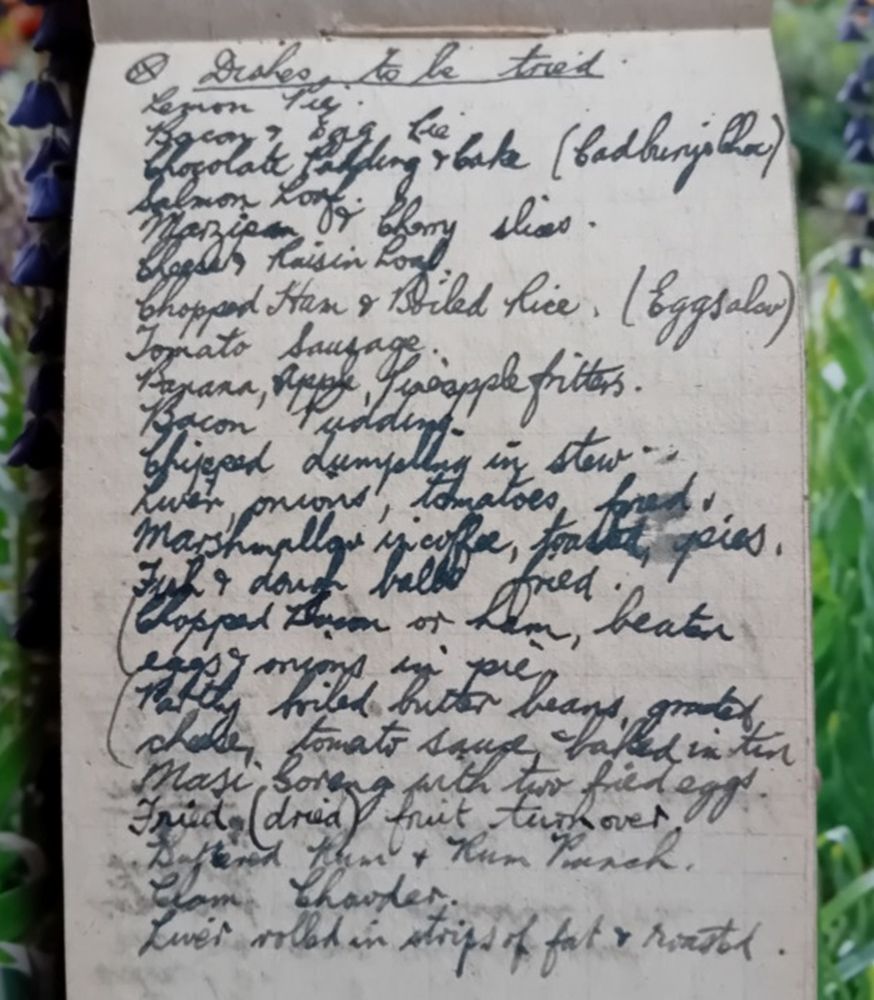 ⊗ Dishes to be tried.
Lemon Pie.
Bacon & Egg Pie
Chocolate Pudding & Cake (Cadburys Choc)
Salmon Loaf.
Marzipan & Cherry slices.
Cheese & Raisin Loaf.
Chopped Ham & Boiled Rice. (Eggs also)
Tomato Sausage.
Banana, Apple, Pineapple fritters.
Bacon Pudding.
Chipped dumpling in stew
Liver, onions, tomatoes, fried.
Marshmallow in coffee, toasted, pies.
Fish & dough balls fried.
(Chopped Bacon or ham, beaten
eggs & onions in pie
(Partly boiled butter beans, grated
cheese, tomato sauce - baked in tin
Masi Goreng with two fried eggs.
Fried (dried) fruit turnover
Buttered Rum & Rum Punch.
Clam Chowder.
Liver rolled in strips of fat & roasted.